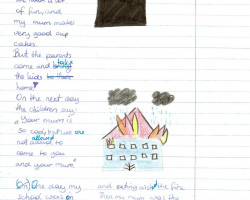 of fun, and
my mum makes
very good cup
cakes.
But the parents
come and take
the kids
home!
On the next day
the children say:
"Your mum is
so cool, but we are
not allowed to
come to you
and your mum"
One day my
school was on
and eating all the fire.
Then my mum was the